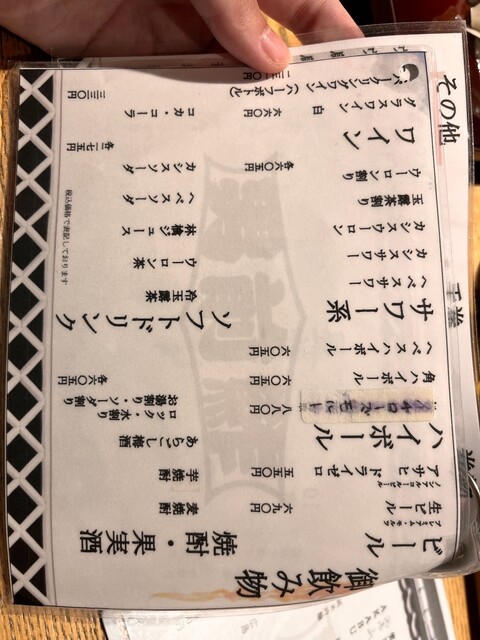 御飲み物
ビール
プレミアム・モルツ
生ビール 六九〇円
ノンアルコールビール
アサヒ ドライゼロ 五五〇円
ハイボール
八八〇円
角ハイボール 六〇五円
ヘベスハイボール 六〇五円
サワー系
ヘベスサワー
カシスサワー
カシスウーロン
玉露茶割り
ウーロン割り
各六〇五円
ワイン
グラスワイン 白 六六〇円
スパークリングワイン(ハーフボトル)
焼酎・果実酒
麦焼酎
芋焼酎
あらごし梅酒
ロック・水割り
お湯割り・ソーダ割り
各六〇五円
ソフトドリンク
冷玉露茶
ウーロン茶
林檎ジュース
ヘベスソーダ
カシスソーダ
各二七五円
コカ・コーラ
三三〇円
税込価格で表記しております
その他
手巻